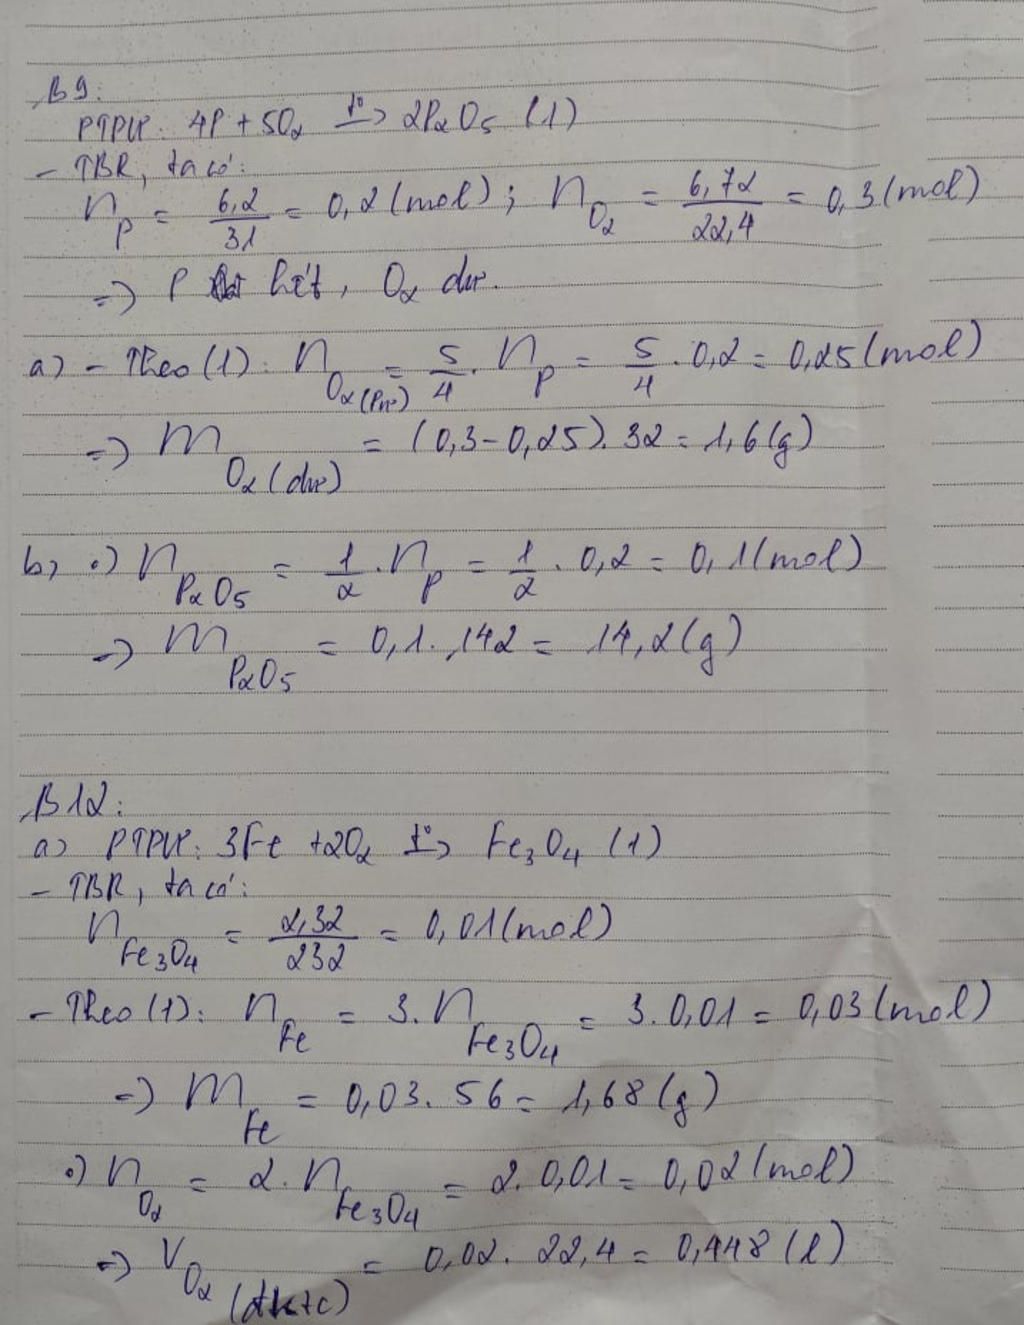 B9:
PTPƯ: 4P + 5O₂ t°→ 2P₂O₅ (1)
- TBR, ta có:
n_P = 6,2/31 = 0,2 (mol); n_O₂ = 6,72/22,4 = 0,3 (mol)
=> P hết, O₂ dư.
a) - Theo (1): n_O₂(Pư) = 5/4 . n_P = 5/4 . 0,2 = 0,25 (mol)
=> m_O₂(dư) = (0,3 - 0,25). 32 = 1,6 (g)
b, •) n_P₂O₅ = 1/2 . n_P = 1/2 . 0,2 = 0,1 (mol)
=> m_P₂O₅ = 0,1. 142 = 14,2 (g)
B12:
a) PTPƯ: 3Fe + 2O₂ t°→ Fe₃O₄ (1)
- TBR, ta có:
n_Fe₃O₄ = 2,32/232 = 0,01 (mol)
- Theo (1): n_Fe = 3. n_Fe₃O₄ = 3. 0,01 = 0,03 (mol)
=> m_Fe = 0,03. 56 = 1,68 (g)
•) n_O₂ = 2. n_Fe₃O₄ = 2. 0,01 = 0,02 (mol)
=> V_O₂ (đktc) = 0,02. 22,4 = 0,448 (l)